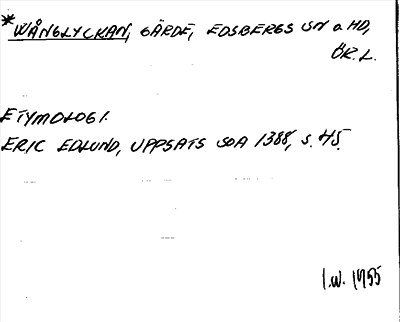 *WÅNGLYCKAN, GÄRDE, EDSBERGS SN o. HD,
ÖR.L.
ETYMOLOGI.
ERIC EDLUND, UPPSATS SOA 1388, S. 45.
I.W. 1955